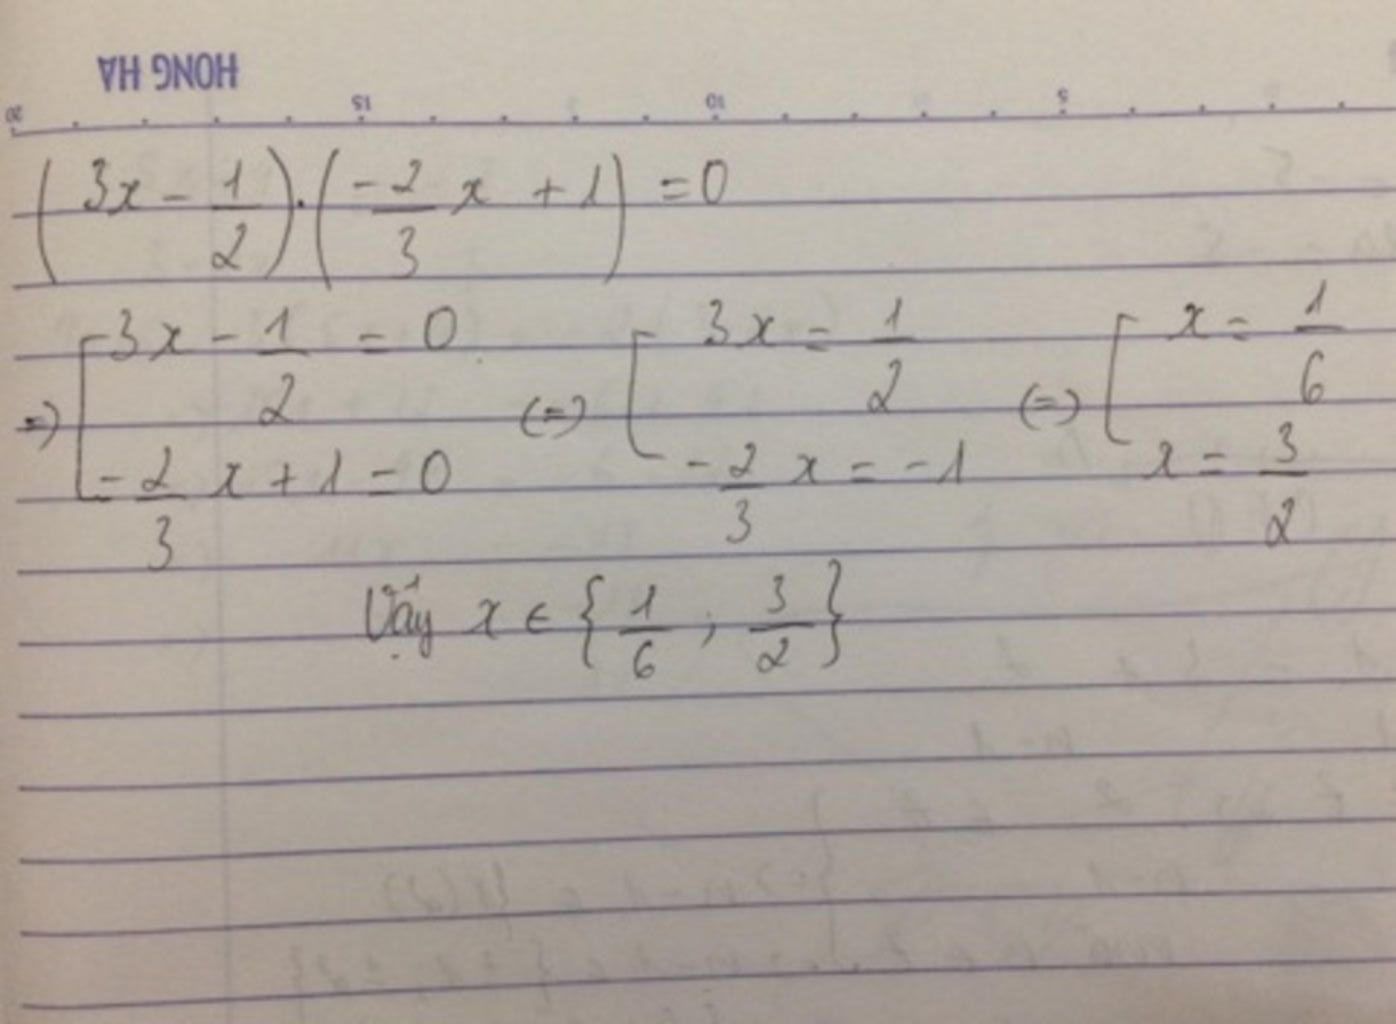 HONG HA
20 15 10 5
(3x - 1/2) . (-2/3 x + 1) = 0
=> [ 3x - 1/2 = 0 (=) [ 3x = 1/2 (=) [ x = 1/6
-2/3 x + 1 = 0 -2/3 x = -1 x = 3/2
Vậy x ∈ { 1/6 ; 3/2 }